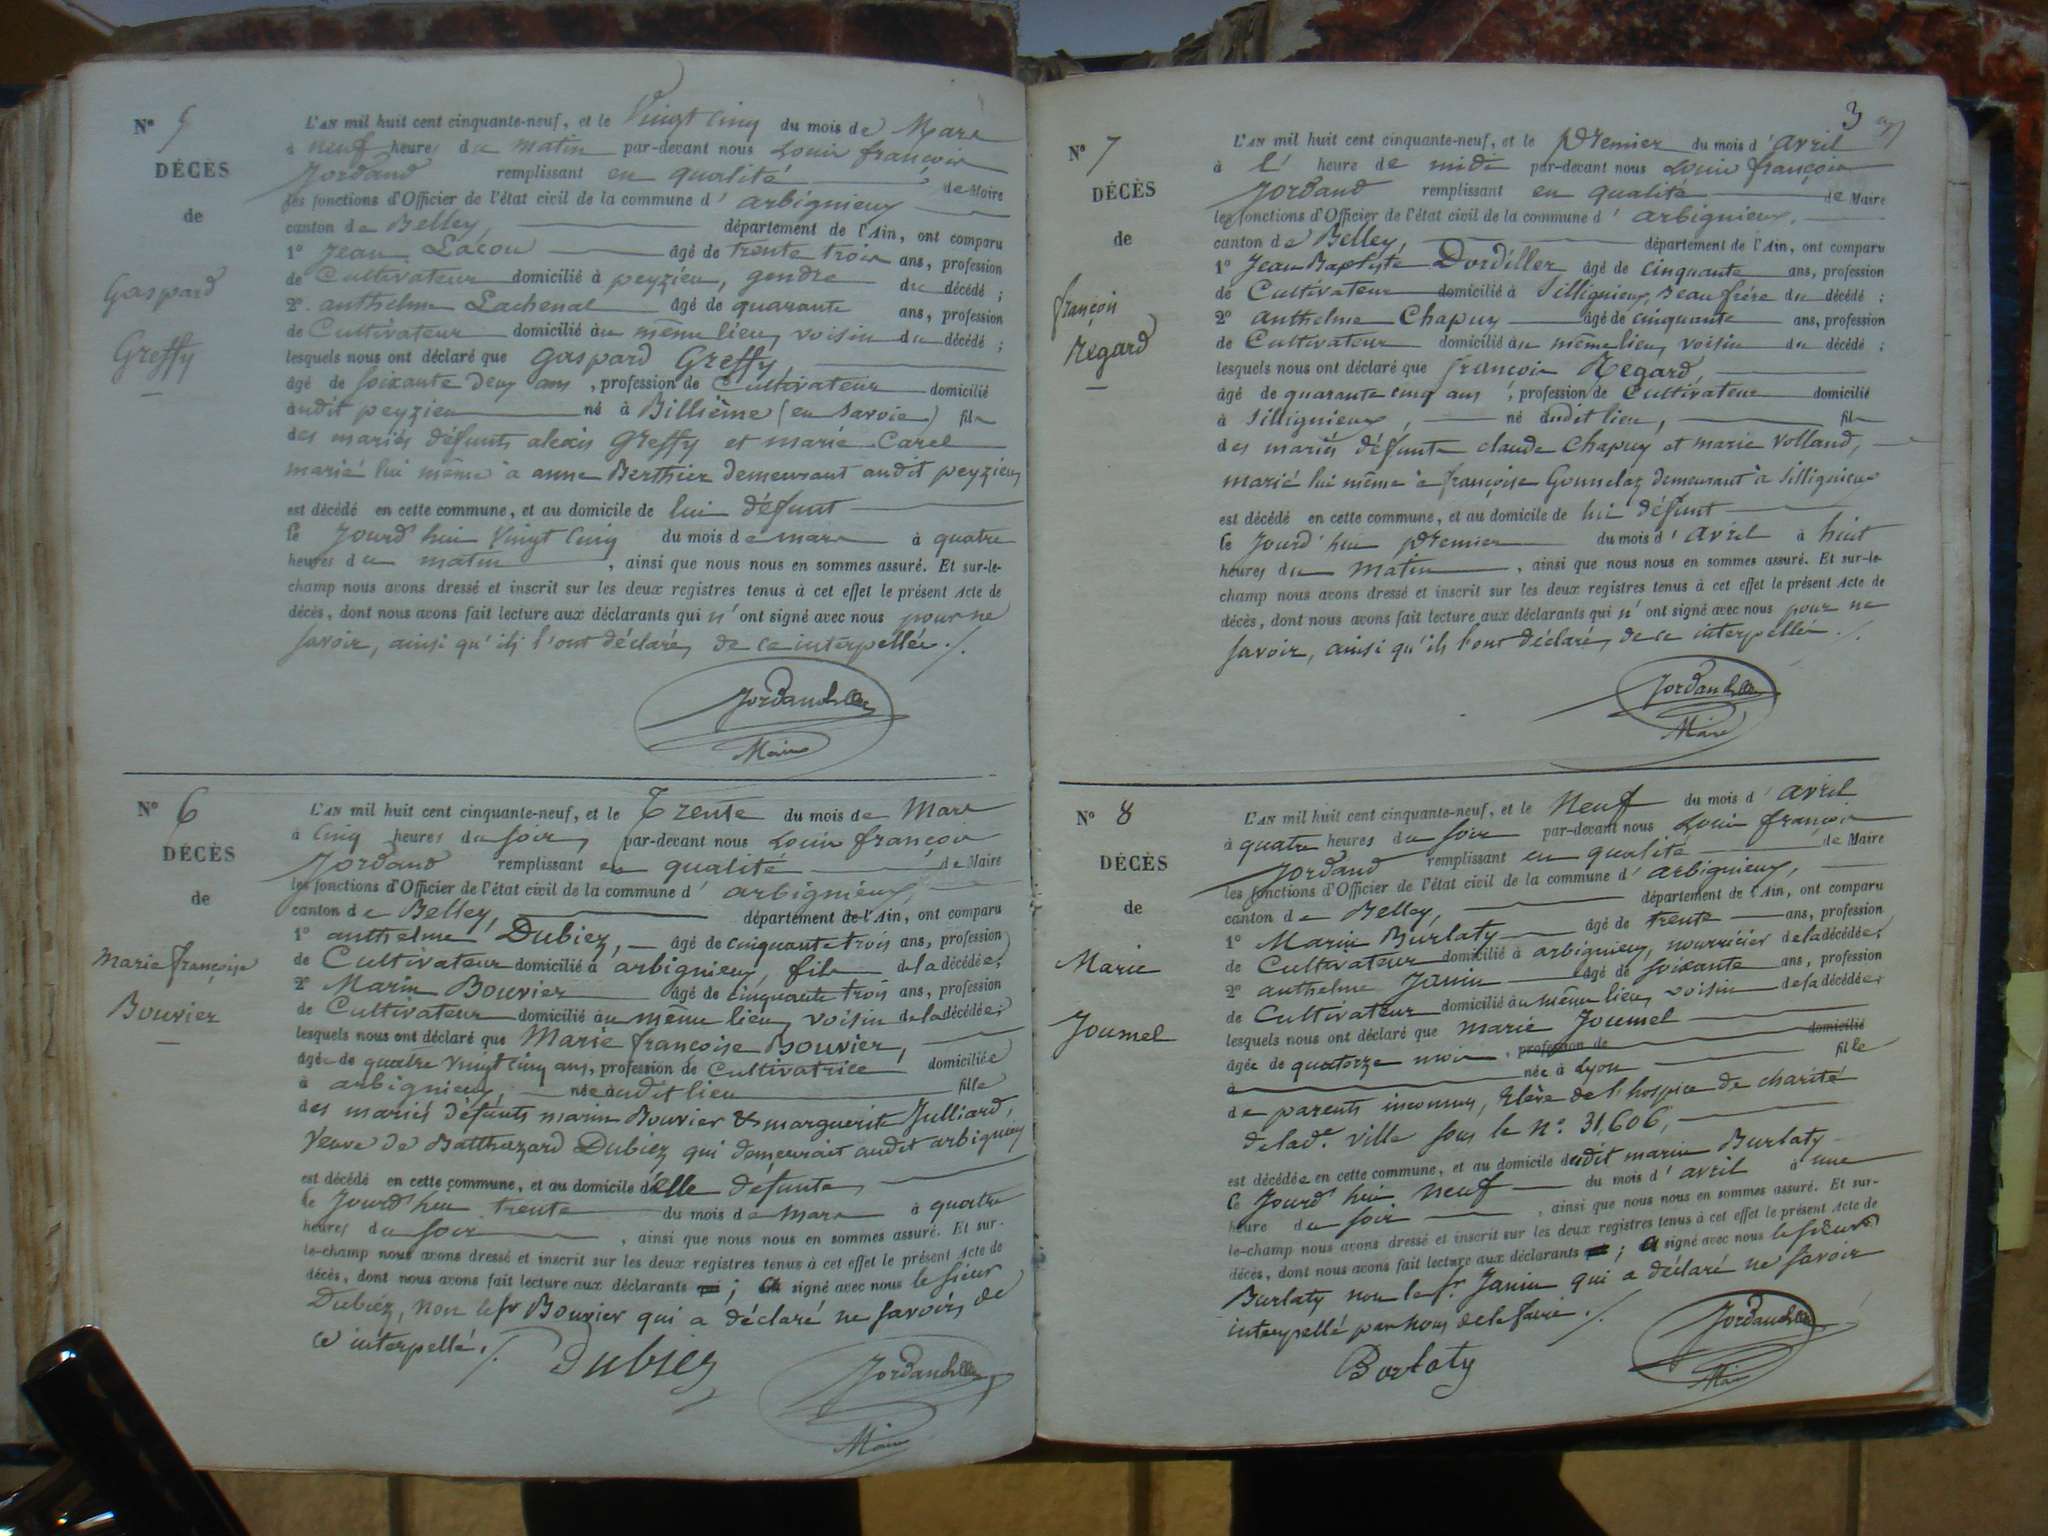 N° 5
DÉCÈS
de
Gaspard
Greffy
L'AN mil huit cent cinquante-neuf, et le Vingt cinq du mois de Mars
à neuf heures du matin par-devant nous Louis françois
Jordand remplissant en qualité de Maire
les fonctions d'Officier de l'état civil de la commune d'arbignieux
canton de Belley, département de l'Ain, ont comparu
1° Jean Lacou âgé de trente trois ans, profession
de Cultivateur domicilié à peyzieu, gendre du décédé ;
2° anthelme Lachenal âgé de quarante ans, profession
de Cultivateur domicilié au même lieu, voisin du décédé ;
lesquels nous ont déclaré que Gaspard Greffy,
âgé de soixante deux ans, profession de Cultivateur domicilié
audit peyzieu né à Billième (en Savoie) fils
des mariés défunts alexis Greffy et marie Carel
marié lui même à anne Berthier demeurant audit peyzieu
est décédé en cette commune, et au domicile de lui défunt
le Jourd'hui Vingt Cinq du mois de mars à quatre
heures du matin, ainsi que nous nous en sommes assuré. Et sur-le-
champ nous avons dressé et inscrit sur les deux registres tenus à cet effet le présent Acte de
décès, dont nous avons fait lecture aux déclarants qui n'ont signé avec nous pour ne
savoir, ainsi qu'ils l'ont déclaré, de ce interpellés ./.
Maire
N° 6
DÉCÈS
de
Marie françoise
Bouvier
L'AN mil huit cent cinquante-neuf, et le Trente du mois de Mars
à Cinq heures du soir, par-devant nous Louis françois
Jordand remplissant en qualité de Maire
les fonctions d'Officier de l'état civil de la commune d'arbignieux,
canton de Belley, département de l'Ain, ont comparu
1° anthelme Dubiez, âgé de cinquante trois ans, profession
de Cultivateur domicilié à arbignieux, fils de la décédée;
2° Marin Bouvier âgé de cinquante trois ans, profession
de Cultivateur domicilié au même lieu, voisin de la décédée;
lesquels nous ont déclaré que Marie françoise Bouvier,
âgée de quatre vingt cinq ans, profession de Cultivatrice domiciliée
à arbignieux, née audit lieu fille
des mariés défunts marin Bouvier & marguerite Julliard,
Veuve de Balthazard Dubiez qui demeurait audit arbignieux
est décédé en cette commune, et au domicile d'elle défunte,
le Jourd'hui trente du mois de mars à quatre
heures du soir, ainsi que nous nous en sommes assuré. Et sur-
le-champ nous avons dressé et inscrit sur les deux registres tenus à cet effet le présent Acte de
décès, dont nous avons fait lecture aux déclarants ; a signé avec nous le sieur
Dubiez, non le sr Bouvier qui a déclaré ne savoir, de
ce interpellé ./.
Dubiez
Maire
3
N° 7
DÉCÈS
de
françois
Regard
L'AN mil huit cent cinquante-neuf, et le Premier du mois d'avril
à l'heure de midi par-devant nous Louis françois
Jordand remplissant en qualité de Maire
les fonctions d'Officier de l'état civil de la commune d'arbignieux,
canton de Belley, département de l'Ain, ont comparu
1° Jean Baptiste Dordiller âgé de cinquante ans, profession
de Cultivateur domicilié à Sillignieux, beau frère du décédé ;
2° anthelme Chapuy âgé de cinquante ans, profession
de Cultivateur domicilié au même lieu, voisin du décédé ;
lesquels nous ont déclaré que françois Regard,
âgé de quarante cinq ans, profession de Cultivateur domicilié
à Sillignieux, né audit lieu, fils
des mariés défunts claude Chapuy et marie Volland,
marié lui même à françoise Gonnelaz demeurant à Sillignieux
est décédé en cette commune, et au domicile de lui défunt
le Jourd'hui Premier du mois d'avril à huit
heures du matin, ainsi que nous nous en sommes assuré. Et sur-le-
champ nous avons dressé et inscrit sur les deux registres tenus à cet effet le présent Acte de
décès, dont nous avons fait lecture aux déclarants qui n'ont signé avec nous pour ne
savoir, ainsi qu'ils l'ont déclaré, de ce interpellés ./.
Maire
N° 8
DÉCÈS
de
Marie
Joumel
L'AN mil huit cent cinquante-neuf, et le Neuf du mois d'avril
à quatre heures du soir par-devant nous Louis françois
Jordand remplissant en qualité de Maire
les fonctions d'Officier de l'état civil de la commune d'arbignieux,
canton de Belley, département de l'Ain, ont comparu
1° Marin Burlaty âgé de trente ans, profession
de Cultivateur domicilié à arbignieux, nourricier de la décédée;
2° anthelme Janin âgé de soixante ans, profession
de Cultivateur domicilié au même lieu, voisin de la décédée;
lesquels nous ont déclaré que marie Joumel
âgée de quatorze mois, profession de domicilié
à née à Lyon fille
de parents inconnus, Elève de l'hospice de charité
de lad.e ville sous le n°. 31,606,
est décédée en cette commune, et au domicile dudit marin Burlaty
le Jourd'hui neuf du mois d'avril à une
heure du soir, ainsi que nous nous en sommes assuré. Et sur-
le-champ nous avons dressé et inscrit sur les deux registres tenus à cet effet le présent Acte de
décès, dont nous avons fait lecture aux déclarants ; a signé avec nous le sieur
Burlaty non le sr. Janin qui a déclaré ne savoir
interpellé par nous de le faire ./.
Burlaty
Maire